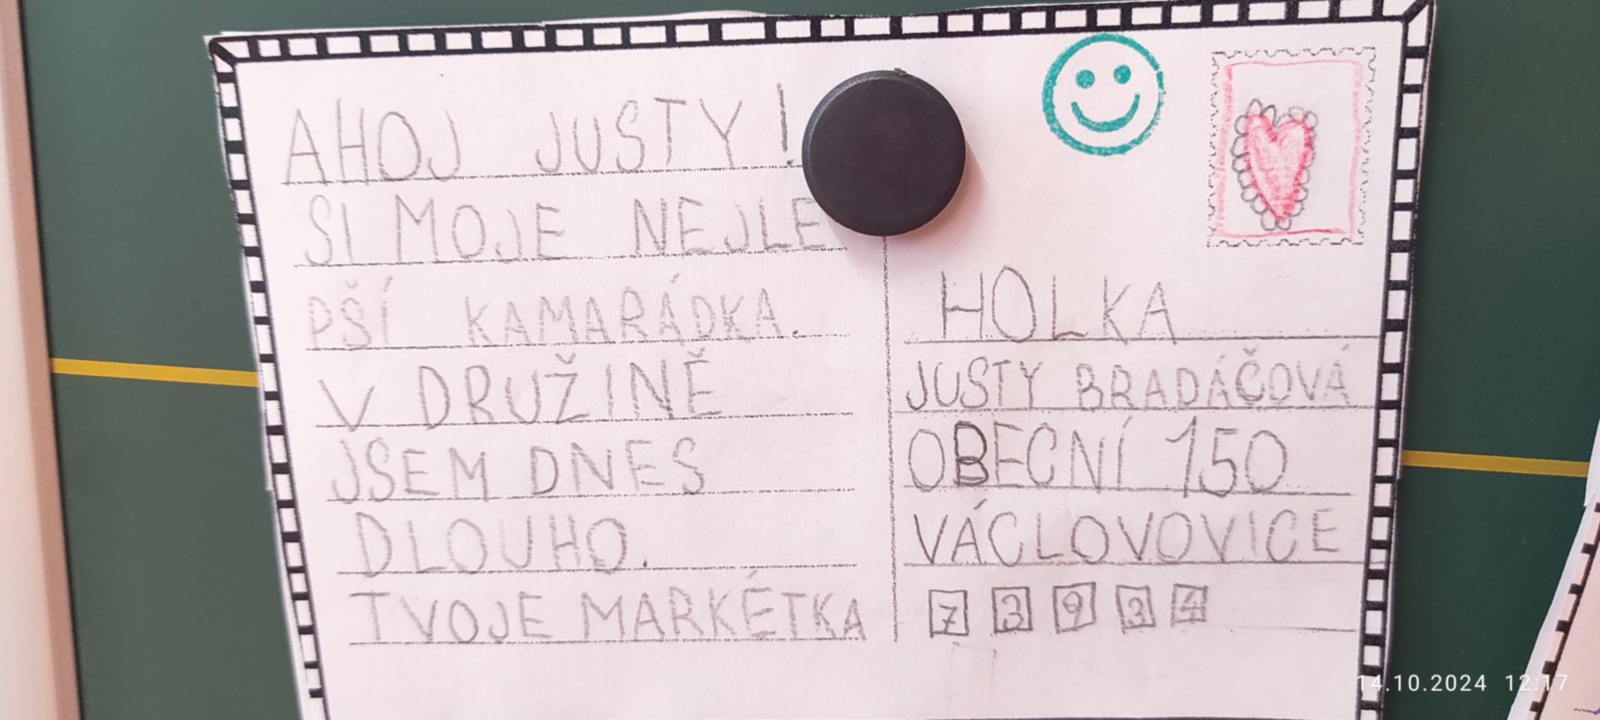 AHOJ JUSTY!
SI MOJE NEJLE
PŠÍ KAMARÁDKA.
V DRUŽINĚ
JSEM DNES
DLOUHO.
TVOJE MARKÉTKA
HOLKA
JUSTY BRADÁČOVÁ
OBECNÍ 150
VÁCLOVOVICE
7 3 9 3 4
14.10.2024 12:17